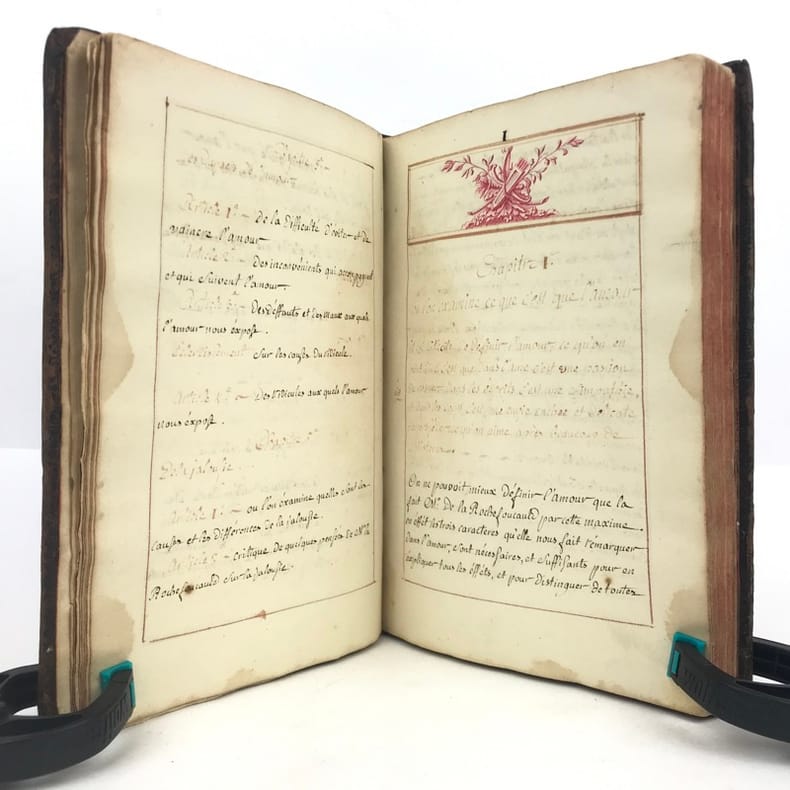 Chapitre 5e
Article 1er – De la difficulté d'éviter et de
vaincre l'amour
Article 2e – Des inconvénients qui accompagnent
et qui suivent l'amour.
Article 3e – Des déffauts et des maux aux quels
l'amour nous éxpose.
sur les causes du ridicule.
Article 4e – Des ridicules aux quels l'amour
nous éxpose.
Chapitre
De la jalousie.
Article 1er – ou l'on éxamine quelles sont les
causes et les différences de la jalousie.
Article 2e – critique de quelques pensées de Mr. de la
Rochefoucauld sur la jalousie.
I
Chapitre I.
ou l'on éxamine ce que c'est que l'amour
Il est difficile de définir l'amour ce qu'on en
peut dire est que dans l'ame c'est une passion
de regner, dans les ésprits c'est une sympathie,
et dans les corps c'est une envie cachée et délicate
de posseder ce qu'on aime après beaucoup de
mistères.
On ne pouvoit mieux définir l'amour que la
fait Mr. De la Rochefoucauld par cette maxime.
en effet les trois caracteres qu'elle nous fait rémarquer
dans l'amour, sont nécessaires, et suffisants pour en
éxpliquer tous les éffets, et pour distinguer de toutes